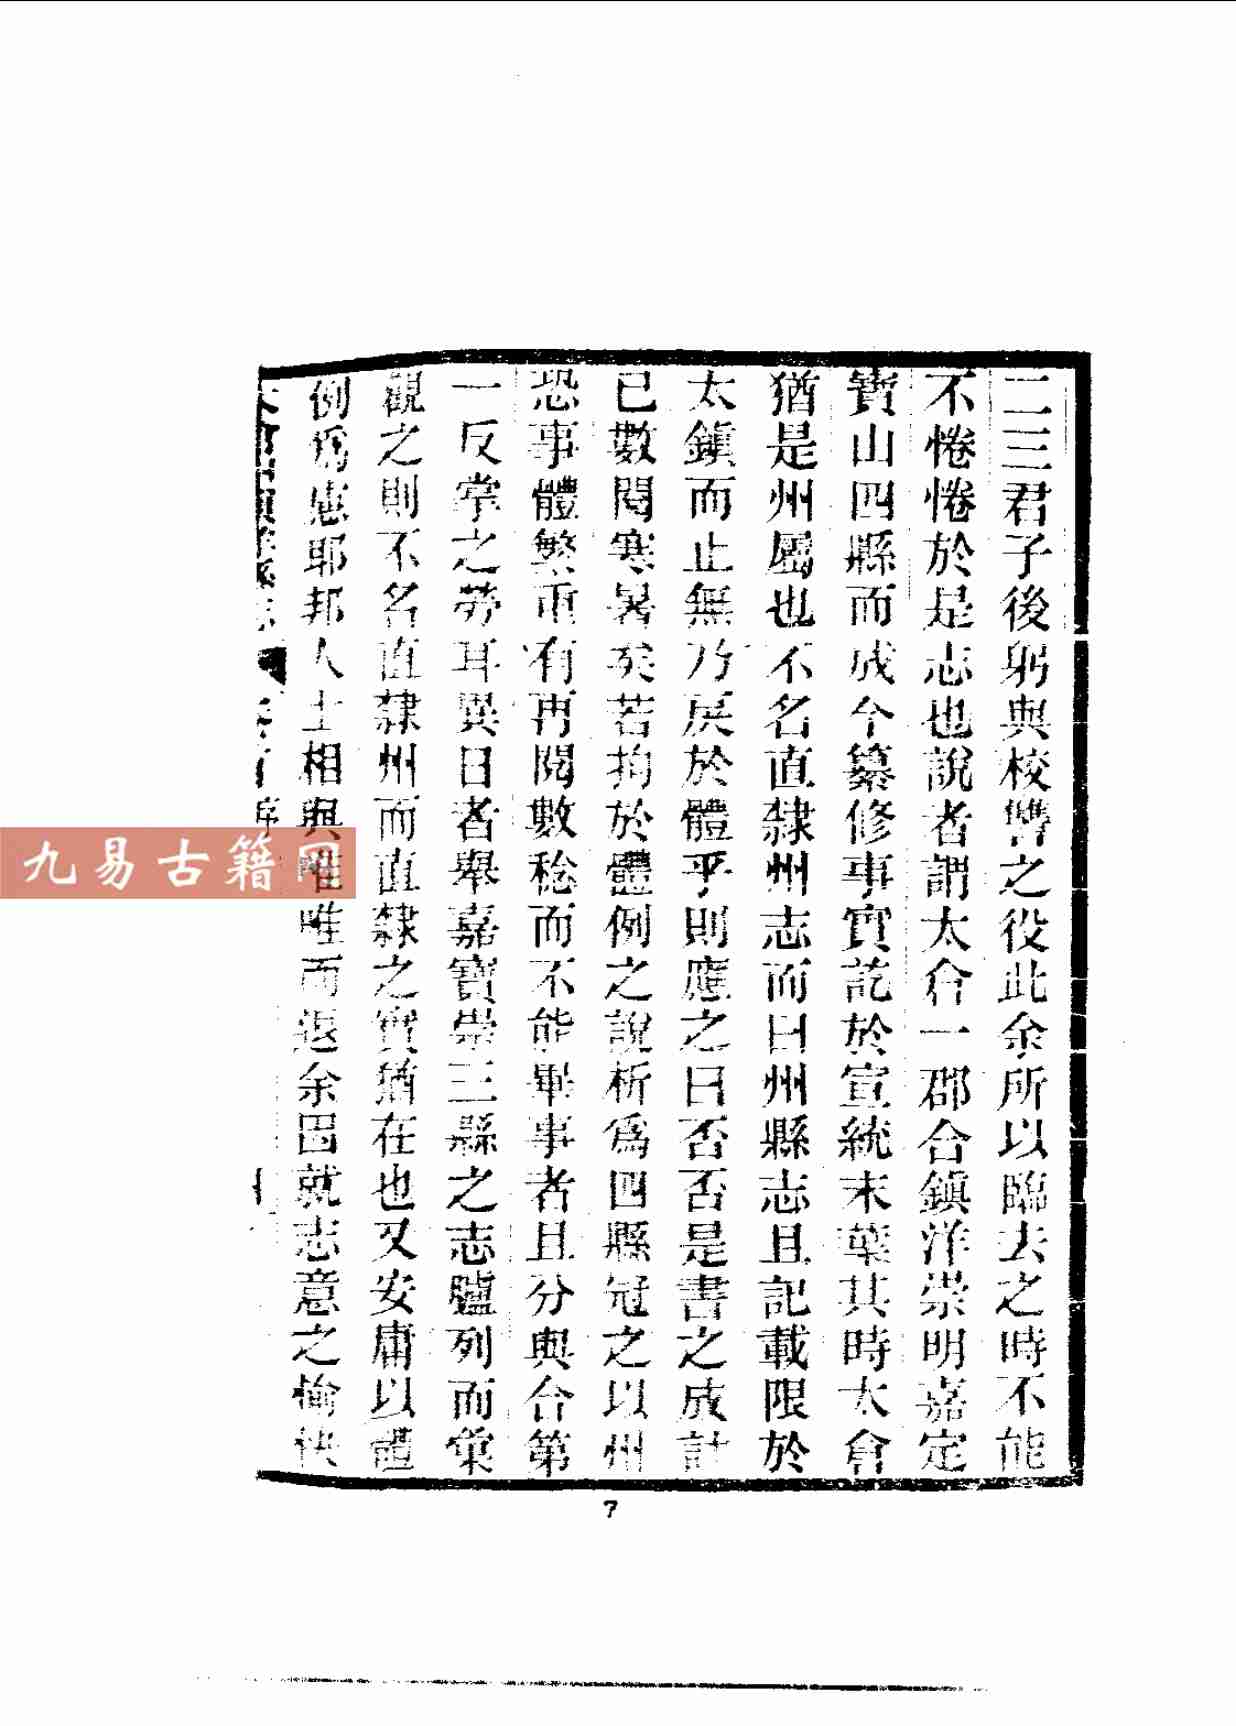 二三君子後躬與校讐之役此余所以臨去之時不能
不惓惓於是志也說者謂太倉一郡合鎭洋崇明嘉定
寶山四縣而成今纂修事實訖於宣統末葉其時太倉
猶是州屬也不名直隸州志而曰州縣志且記載限於
太鎭而止無乃戾於體乎則應之曰否否是書之成計
已數閱寒暑矣若拘於體例之說析爲四縣冠之以州
恐事體繁重有再閱數稔而不能畢事者且分與合第
一反掌之勞耳異日者舉嘉寶崇三縣之志臚列而彙
觀之則不名直隸州而直隸之實猶在也又安庸以體
例爲慮耶邦人士相與唯唯而退余因就志意之愉快
九易古籍
7